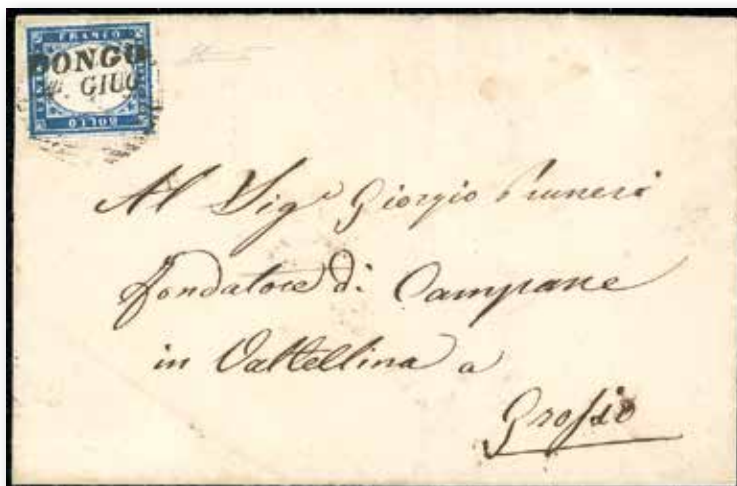 FRANCO
DONGO
GIUG
BOLLO
Al Sigr Giorgio Pruneri
fondatore di Campane
in Valtellina a
Grosio